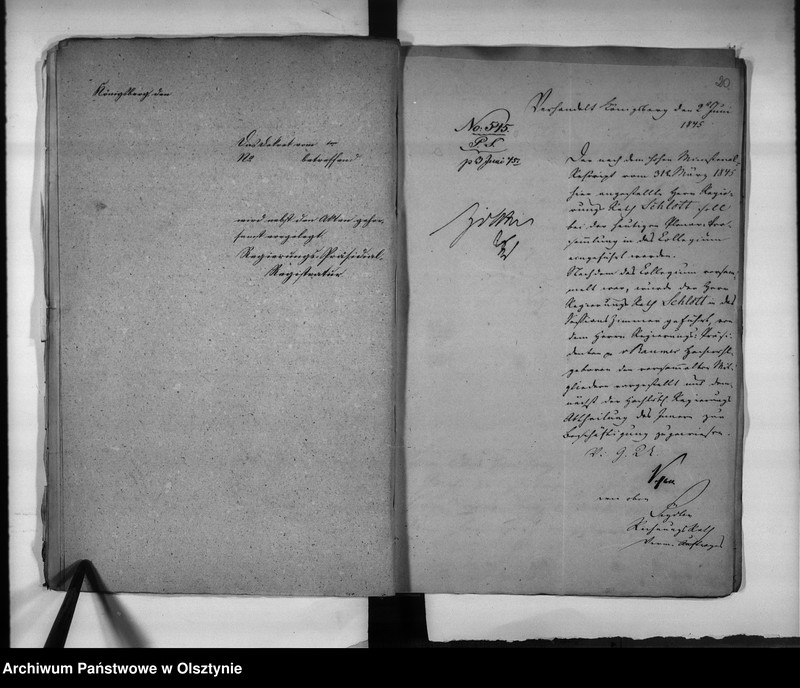 Königsberg den
Das Dekret vom
No betreffend
wird nebst den Akten gehor-
samst vorgelegt.
Regierungs-Präsidial-
Registratur.
20
Verhandelt Königsberg den 2t Juni
1845
No: 545.
P. S.
p 3 Juni 45.
Der nach dem hohen Ministerial-
Rescript vom 31t März 1845
hier angestellte Herr Regie-
rungs Rath Schlott soll
bei der heutigen Plenar-Ver-
sammlung in das Collegium
eingeführt werden.
Nachdem das Collegium versam-
melt war, wurde der Herr
Regierungs Rath Schlott in das
Sessions Zimmer geführt, von
dem Herrn Regierungs-Präsi-
denten v Raumer Hochwohl-
geboren den versammelten Mit-
gliedern vorgestellt und dem-
nächst der Hochlöbl. Regierungs
Abtheilung des Innern zur
Beschäftigung zugewiesen.
V. g. u.
von oben
Rechnungs Rath